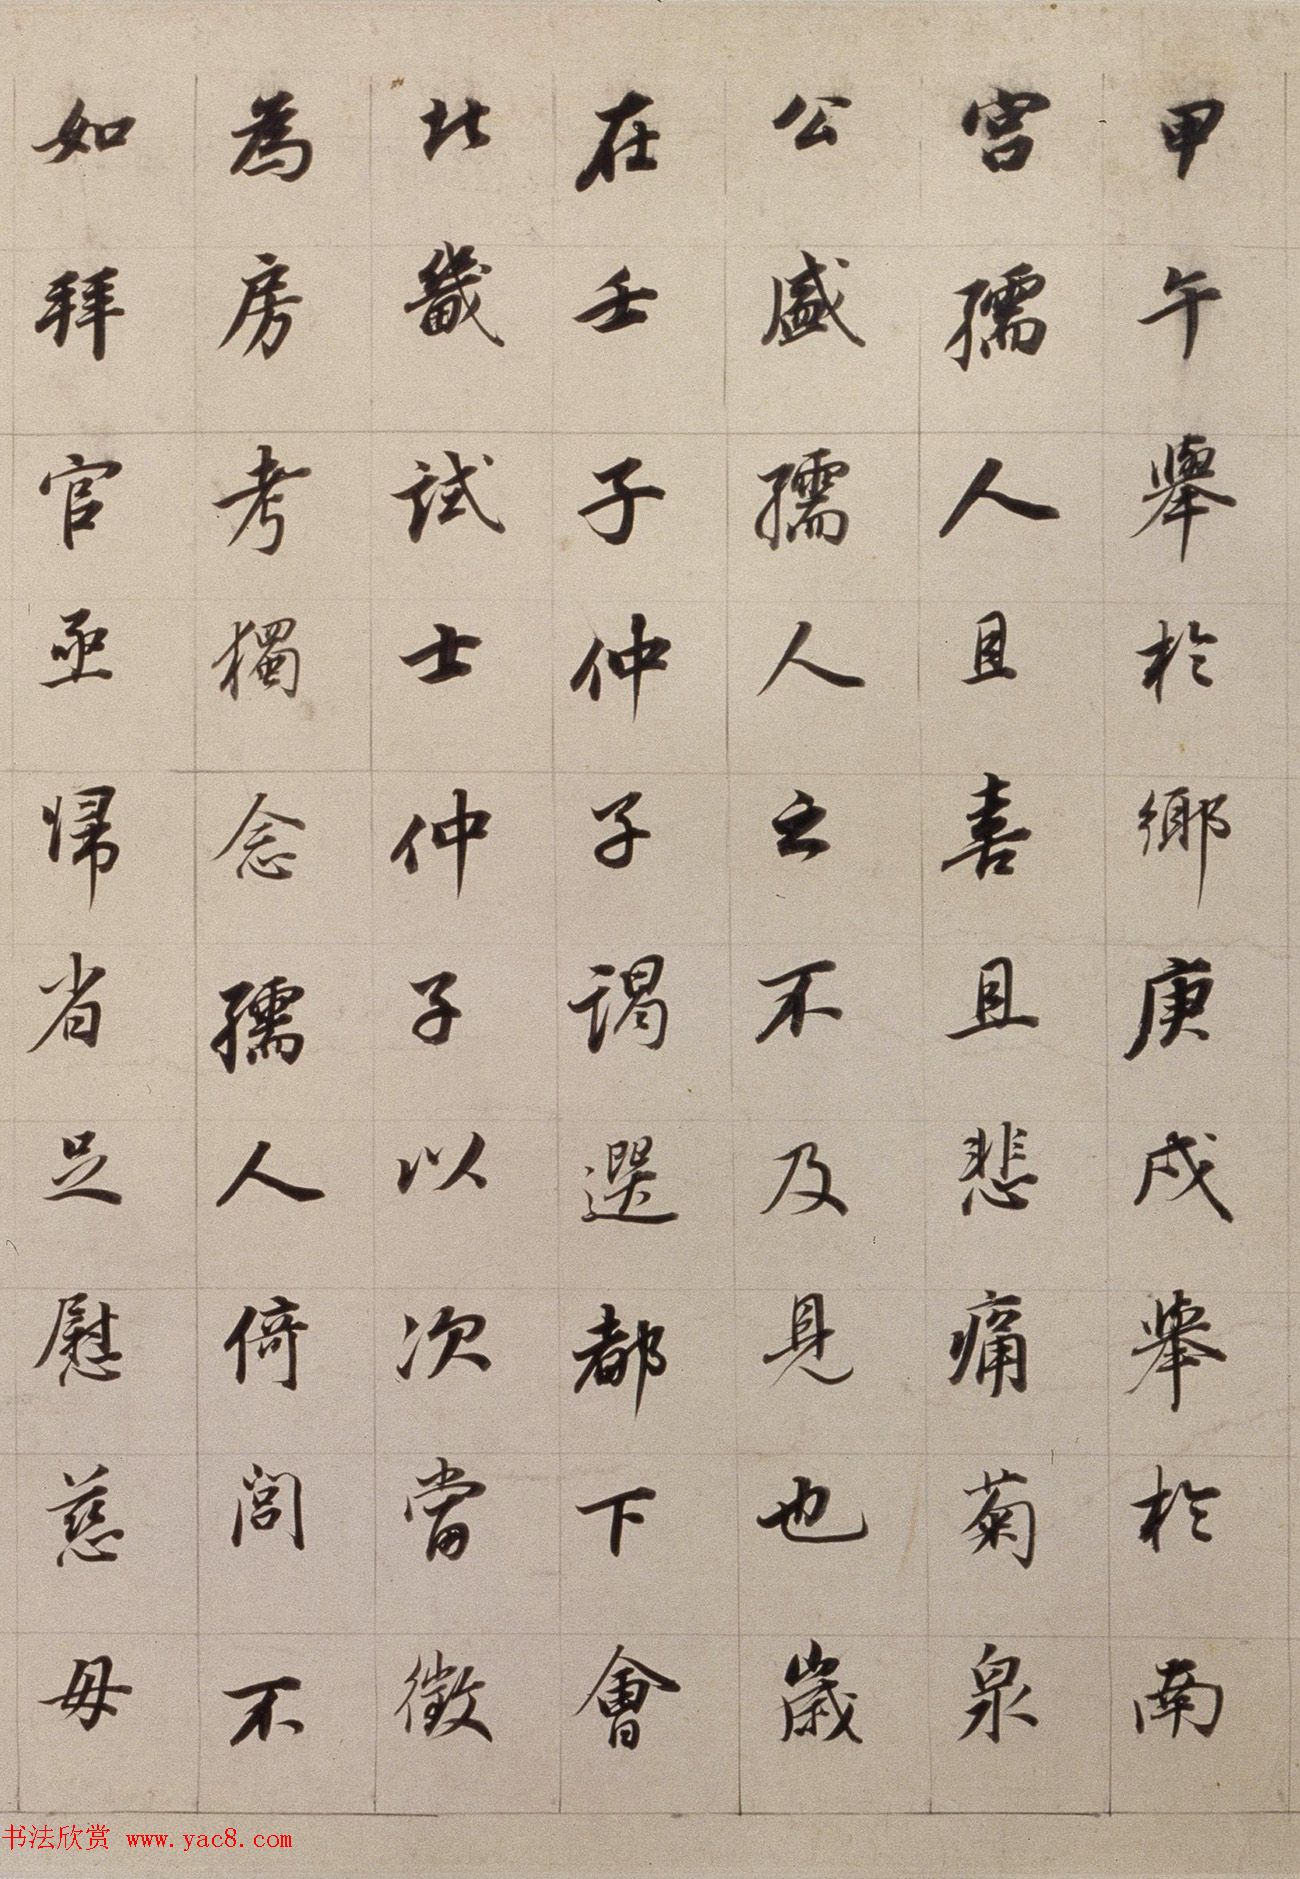 甲午舉於鄉庚戌舉於南
宮孺人且喜且悲痛菊泉
公盛孺人之不及見也歲
在壬子仲子謁選都下會
北畿試士仲子以次當徵
為房考獨念孺人倚閭不
如拜官亟歸省足慰慈母
书法欣赏 www.yac8.com